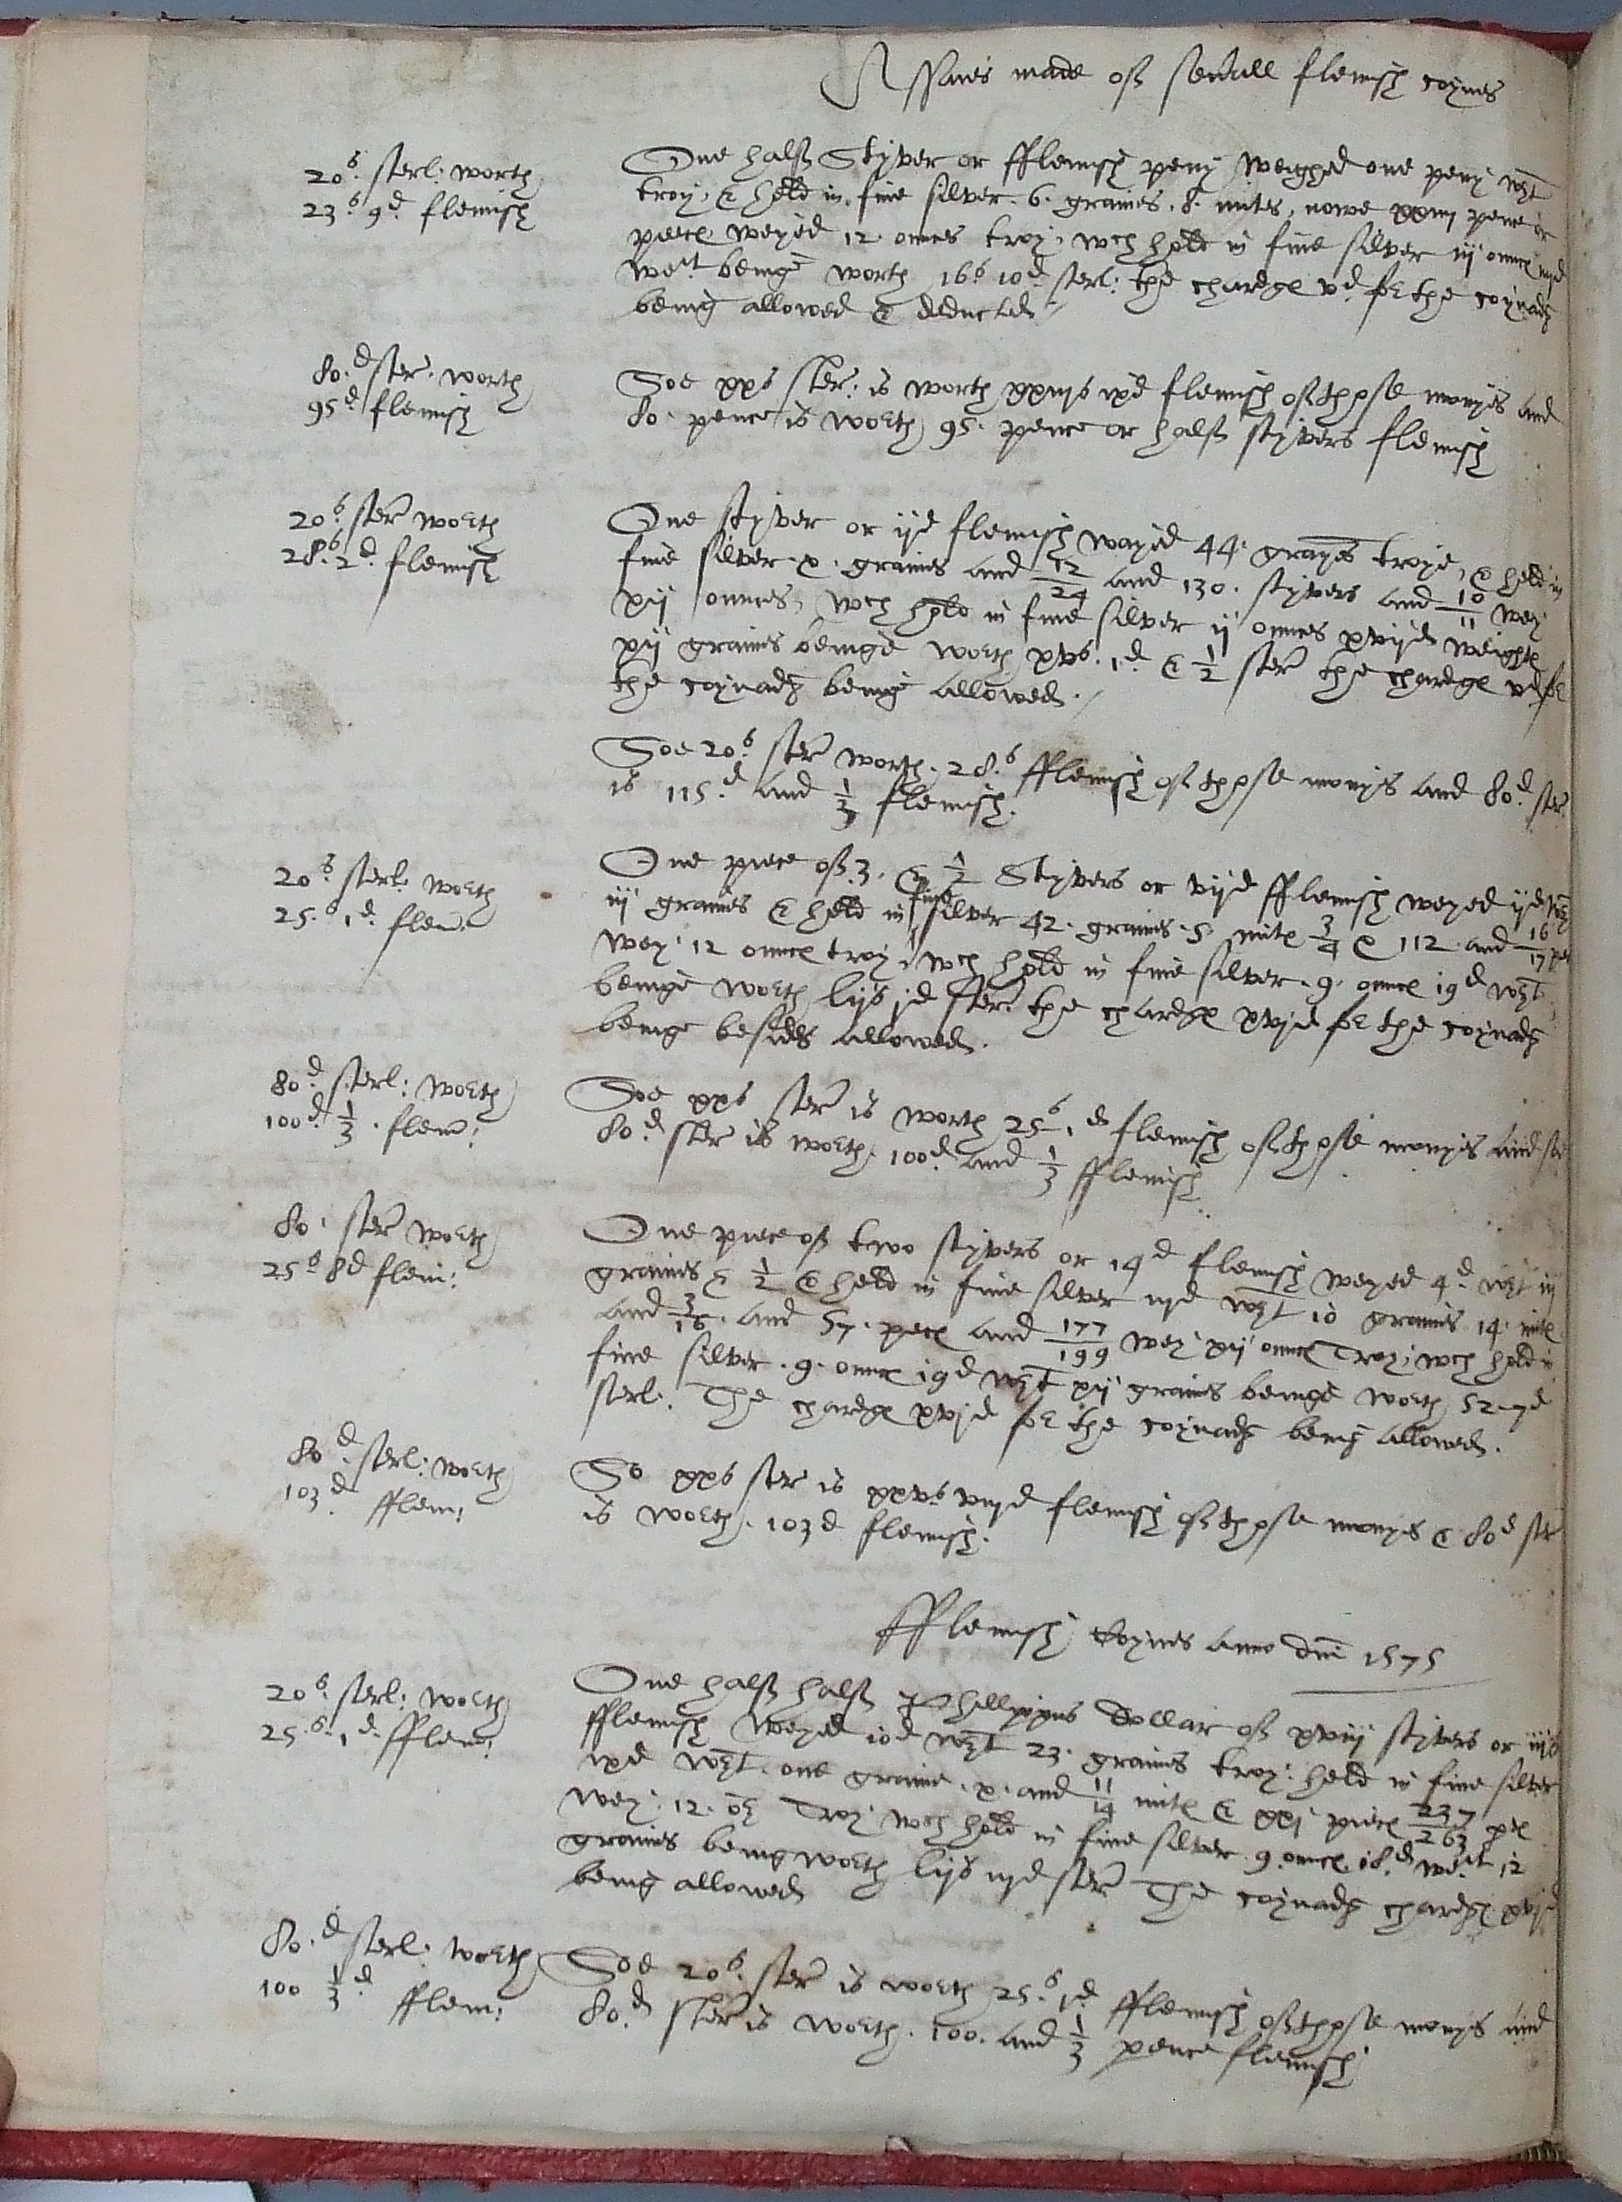 Assaies made of seuerall flemish coynes
20s. sterl: worth
23s 9d. flemish
One halfe Styver or fflemish peny weighed one peny wgt
troy, & held in fine silver. 6. graines. 8. mites, nowe
peeces weyed 12. onces troy, wch hold in fine silver iij onnces
weit beinge worth 16s 10d sterl: the chardge vd. for the coynadg
being allowed & deducted
80.d ster. worth
95d flemish
Soe xxs ster: is worth xxiijs ixd flemish of thyse monyes and
80. pence is worth 95. pence or halfe styvers flemish
20s. ster worth
28s. 2d. flemish
One styver or ijd flemish wayed 44. graynes troye, & held in
fine silver. x. graines and 12/24 and 130. styvers and 10/11 wey
xij onnces, wch hold in fine silver ij onnces xvijd weight
xij graines beinge worth xvs. 1.d & 1/2 ster the chardge vd for
the coynadg beinge allowed.
Soe 20s. ster worth. 28.s fflemish of thyse monys and 80.d ster
is 115.d and 1/3 flemish.
20s. sterl: worth
25.s 1d. flem:
One piece of 3. & 1/2 Styvers or vijd fflemish weyed ijd wgt
iij graines & held in fine silver 42. graines. 5 mite 3/4 & 112. and 16/17 pec
wey. 12 onnces troy, wch hold in fine silver. 9. onnce 19d wgt
beinge worth lijs jd ster: the chardge xvjd for the coynadg
beinge besides allowed.
80d. sterl: worth
100d. 1/3. flem:
Soe xxs ster is worth 25s 1.d flemish of thyse monyes and
80.d ster is worth. 100d. and 1/3 fflemish
80. ster worth
25s 8d flem:
One piece of two styvers or 14d flemish weyed 4d. wgt iij
graines & 1/2 & held in fine silver iijd wgt 10 graines 14. mite
and 3/16. and 57. pece and 177/199 wey xij onnce Troy, wch hold in
fine silver. 9. onnce 19d wgt xij graines beinge worth 52-7d
sterl. The chardge xvjd for the coynadg being allowed.
80d. sterl: worth
103d. fflem:
So xxs ster is xxvs viijd flemish of thyse monyes & 80d ster
is worth. 103d flemish.
Fflemish Coynes anno dni 1575
20s. sterl: worth
25.s. 1d. fflem:
One halfe halfe Phillippus Dollar of xviij styvers or iijs
fflemish weyed 10d wgt 23. graines troy: held in fine silver
ixd wgt. one graine. x. and 11/14 mite & xxj piece 237/263 pte
wey. 12. oz Troy wch held in fine silver. 9. onnce. 18.d weit 12
graines being worth lijs iijd ster The coynadg chardge xvjd
being allowed
80.d sterl: worth
100 1/3 d fflem:
Soe 20s. ster is worth 25.s 1.d fflemish of thyse monys and
80.d ster is worth. 100. and 1/3 pence flemish